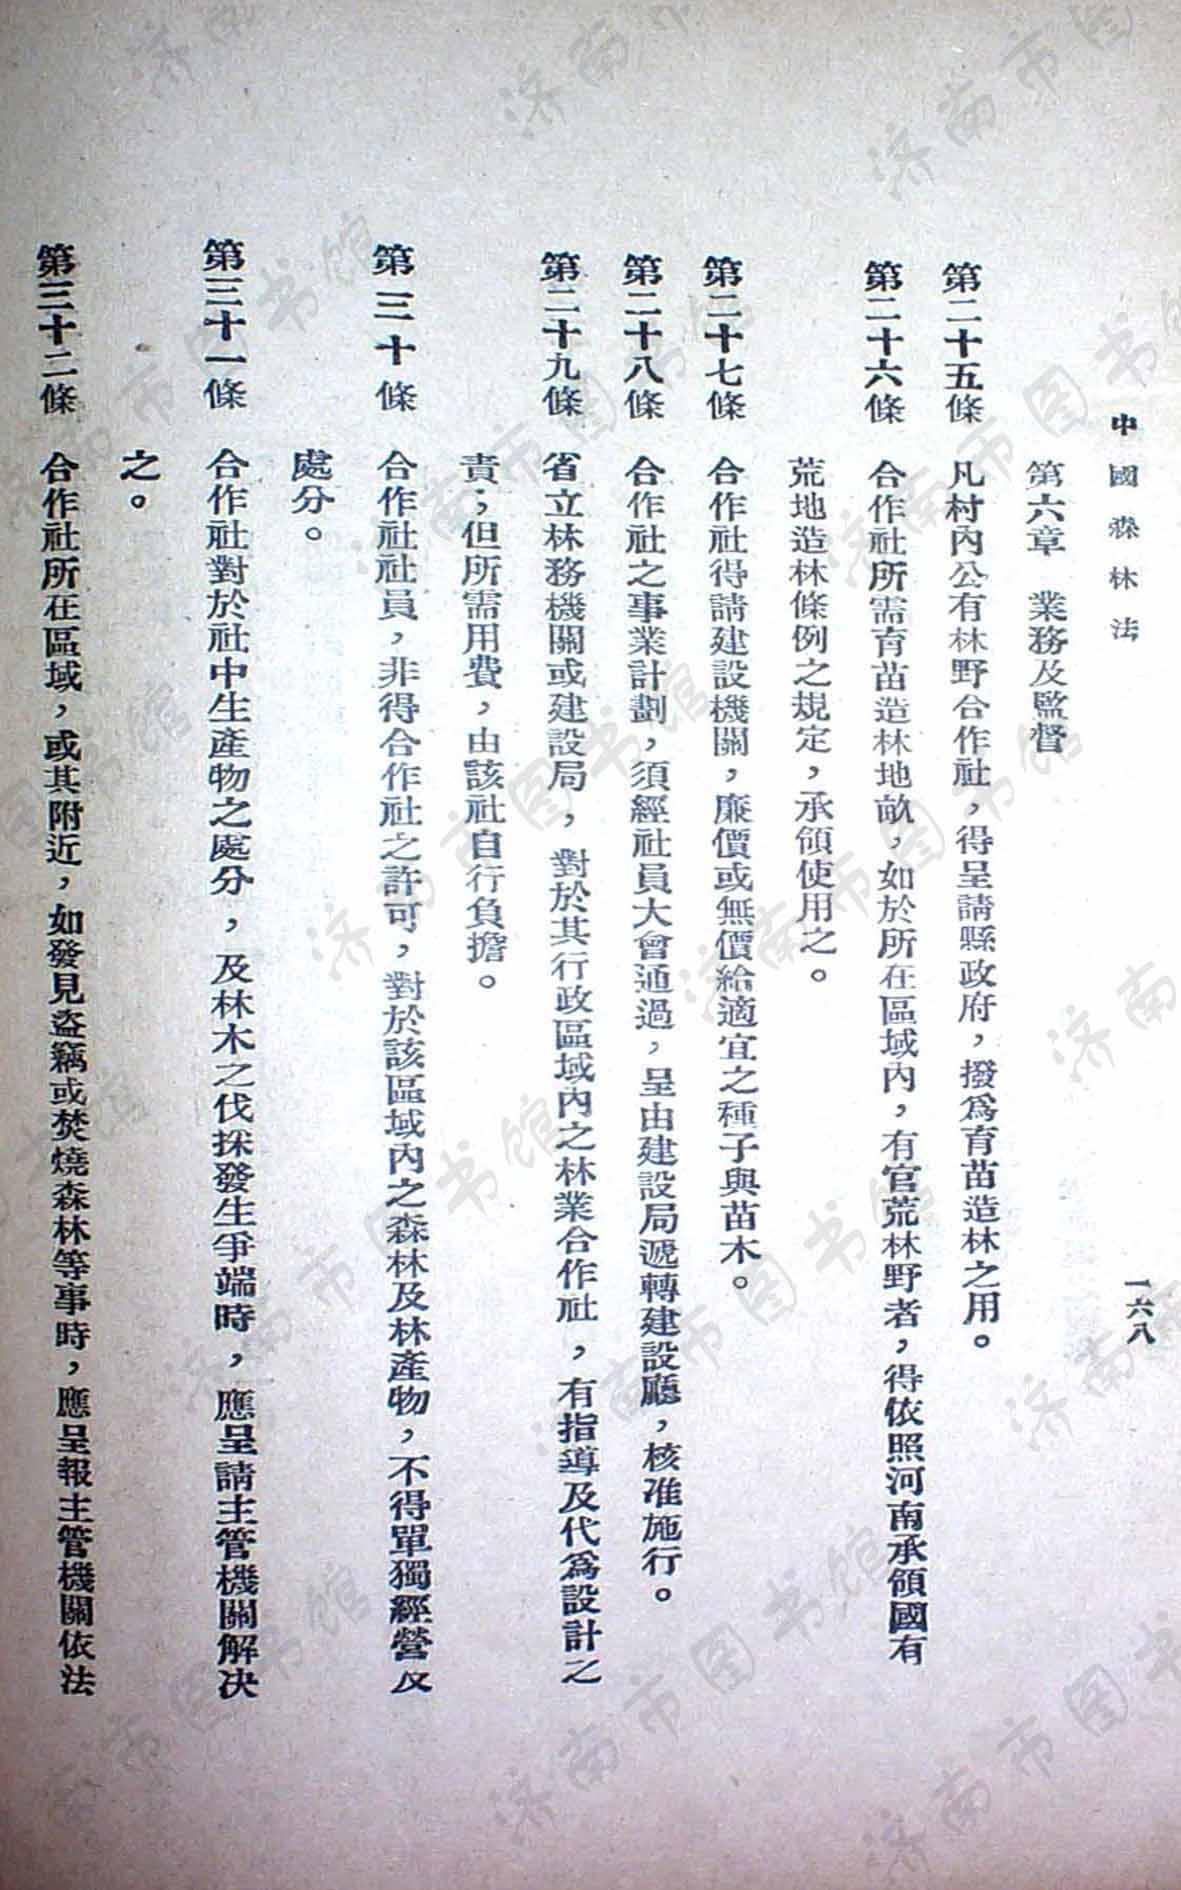 中國森林法
一六八
第六章 業務及監督
第二十五條 凡村內公有林野合作社，得呈請縣政府，撥爲育苗造林之用。
第二十六條 合作社所需育苗造林地畝，如於所在區域內，有官荒林野者，得依照河南承領國有
荒地造林條例之規定，承領使用之。
第二十七條 合作社得請建設機關，廉價或無價給適宜之種子與苗木。
第二十八條 合作社之事業計劃，須經社員大會通過，呈由建設局遞轉建設廳，核准施行。
第二十九條 省立林務機關或建設局，對於其行政區域內之林業合作社，有指導及代爲設計之
責；但所需用費，由該社自行負擔。
第三十條 合作社社員，非得合作社之許可，對於該區域內之森林及林產物，不得單獨經營及
處分。
第三十一條 合作社對於社中生產物之處分，及林木之伐採發生爭端時，應呈請主管機關解決
之。
第三十二條 合作社所在區域，或其附近，如發見盜竊或焚燒森林等事時，應呈報主管機關依法
济南市图书馆